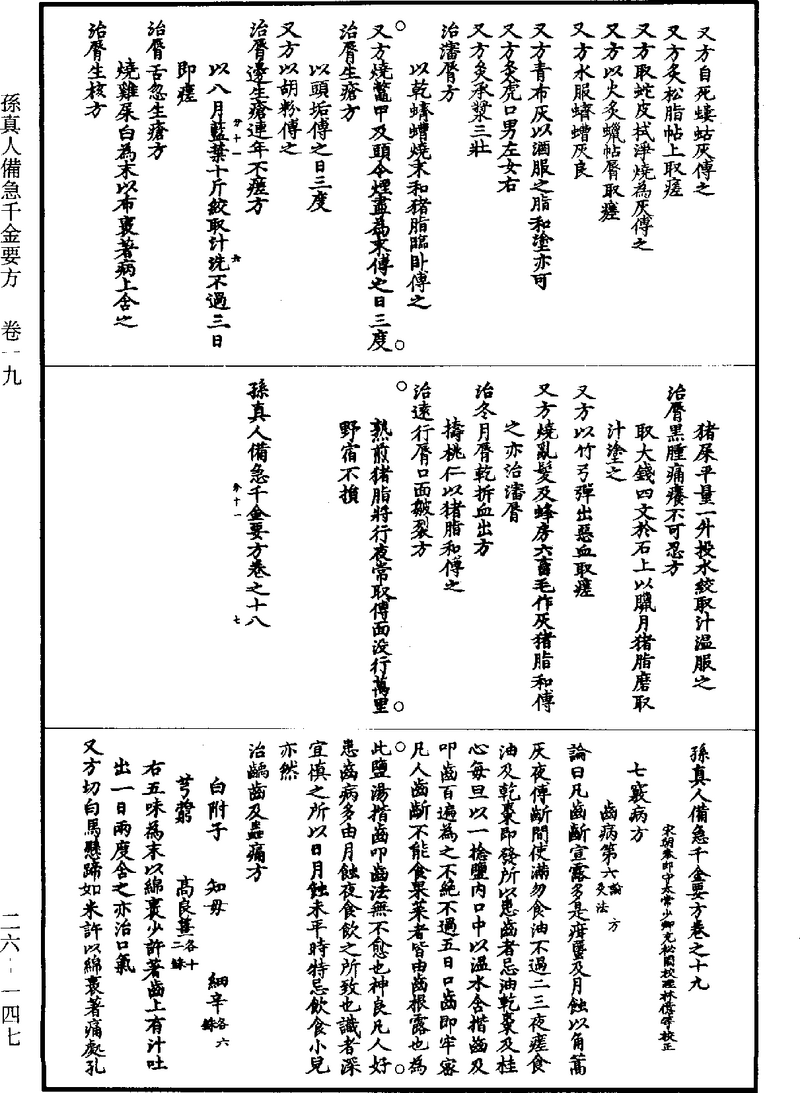 又方自死螻蛄灰傅之
又方炙松脂帖上取瘥
又方取蛇皮拭淨燒為灰傅之
又方以火炙蠟帖脣取瘥
又方水服蠐螬灰良
又方青布灰以酒服之脂和塗亦可
又方灸虎口男左女右
又方灸承漿三壯
治瀋脣方
以乾蠐螬燒末和猪脂臨卧傅之
又方燒鼈甲及頭令煙盡為末傅之日三度
治脣生瘡方
以頭垢傅之日三度
又方以胡粉傅之
治脣邊生瘡連年不瘥方
以八月藍葉十斤絞取汁洗不過三日
即瘥
治脣舌忽生瘡方
燒雞屎白為末以布裹著病上含之
治脣生核方
猪屎平量一升投水絞取汁温服之
治脣黑腫痛癢不可忍方
取大錢四文於石上以臘月猪脂磨取
汁塗之
又方以竹弓彈出惡血取瘥
又方燒亂髮及蜂房六畜毛作灰猪脂和傅
之亦治瀋脣
治冬月脣乾拆血出方
擣桃仁以猪脂和傅之
治遠行脣口面皴裂方
熟煎猪脂將行夜常取傅面没行萬里
野宿不損
孫真人備急千金要方卷之十八
孫真人備急千金要方卷之十九
宋朝奉郎守太常少卿充秘閣校理林億等校正
七竅病方
齒病第六論 方 灸法
論曰凡齒齗宣露多是疳䘌及月蝕以角蒿
灰夜傅齗間使滿勿食油不過二三夜瘥食
油及乾棗即發所以患齒者忌油乾棗及桂
心每旦以一捻鹽内口中以温水含揩齒及
叩齒百遍為之不絶不過五日口齒即牢密
凡人齒齗不能食果菜者皆由齒根露也為
此鹽湯揩齒叩齒法無不愈也神良凡人好
患齒病多由月蝕夜食飲之所致也識者深
宜慎之所以日月蝕未平時特忌飲食小兒
亦然
治齲齒及蟲痛方
白附子 知母 細辛各六銖
芎藭 高良薑各十二銖
右五味為末以綿裹少許著齒上有汁吐
出一日兩度含之亦治口氣
又方切白馬懸蹄如米許以綿裹著痛處孔
孫真人備急千金要方 卷一九
二六--一四七